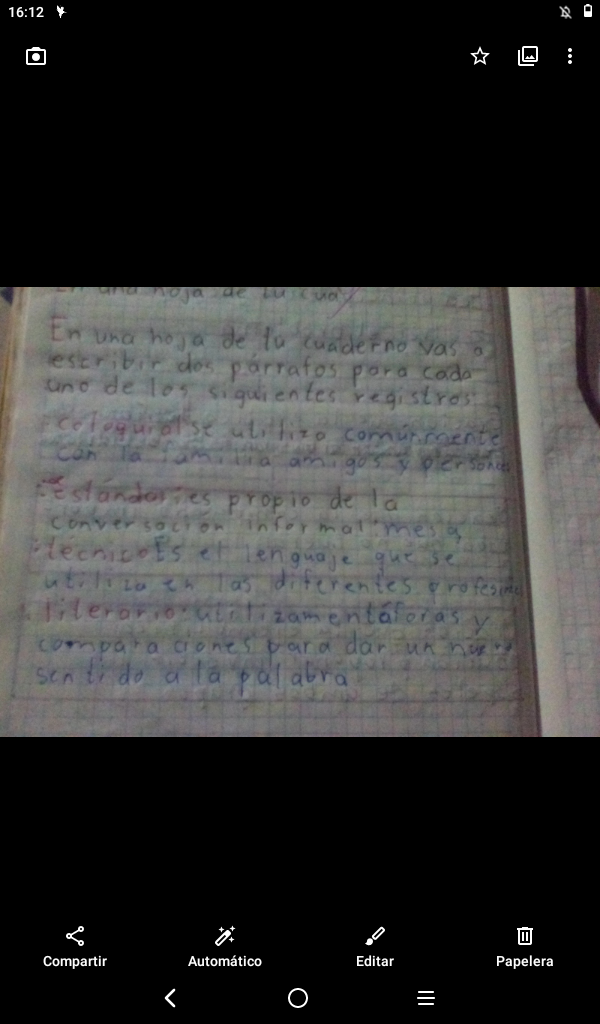 16:12
En una hoja de tu cua
En una hoja de tu cuaderno vas a
escribir dos párrafos para cada
uno de los siguientes registros
coloquial se utiliza comúnmente
con la familia amigos y
Estándar: es propio de la
conversación informal
técnico Es el lenguaje que se
utiliza en las diferentes
literario: utiliza mentáforas y
comparaciones para dar un
sentido a la palabra
Compartir
Automático
Editar
Papelera